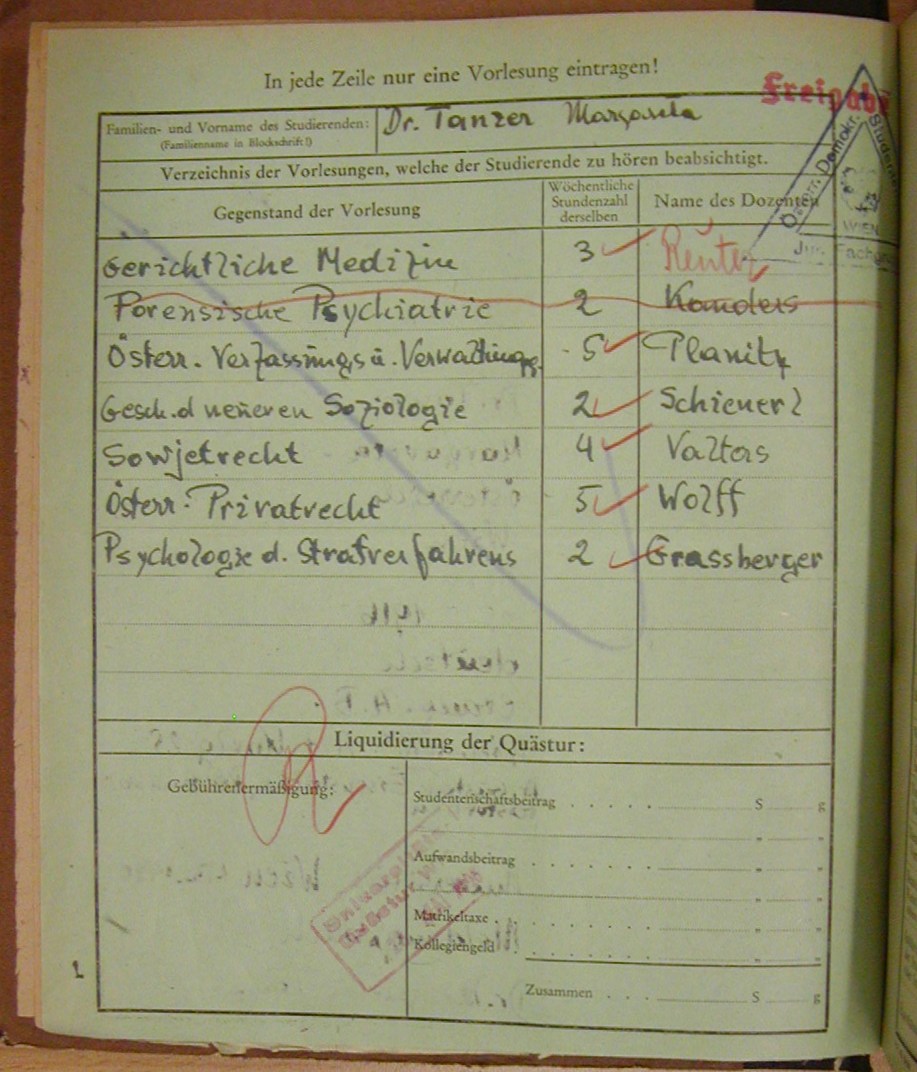 In jede Zeile nur eine Vorlesung eintragen!
Freigabe
Familien- und Vorname des Studierenden: Dr. Tanzer Margareta
(Familienname in Blockschrift!)
Verzeichnis der Vorlesungen, welche der Studierende zu hören beabsichtigt.
Gegenstand der Vorlesung Wöchentliche Stundenzahl derselben Name des Dozenten
WIEN
Gerichtliche Medizin 3 Reuter
Forensische Psychiatrie 2 Kamders
Österr. Verfassungs u. Verwaltungs. 5 Planitz
Gesch. d neueren Soziologie 2 Schienerl
Sowjetrecht 4 Valters
Österr. Privatrecht 5 Wolff
Psychologie d. Strafverfahrens 2 Grassberger
Liquidierung der Quästur:
Gebührenermäßigung:
Studentenschaftsbeitrag . . . . . S g
" "
Aufwandsbeitrag . . . . . . . " "
" "
Matrikeltaxe . . . . . . . . " "
Kollegiengeld . . . . . . . . " "
Zusammen . . . S g
1